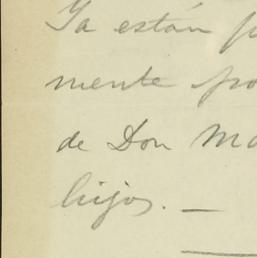 Ya están p
mente po
de Don Ma
hijos. —